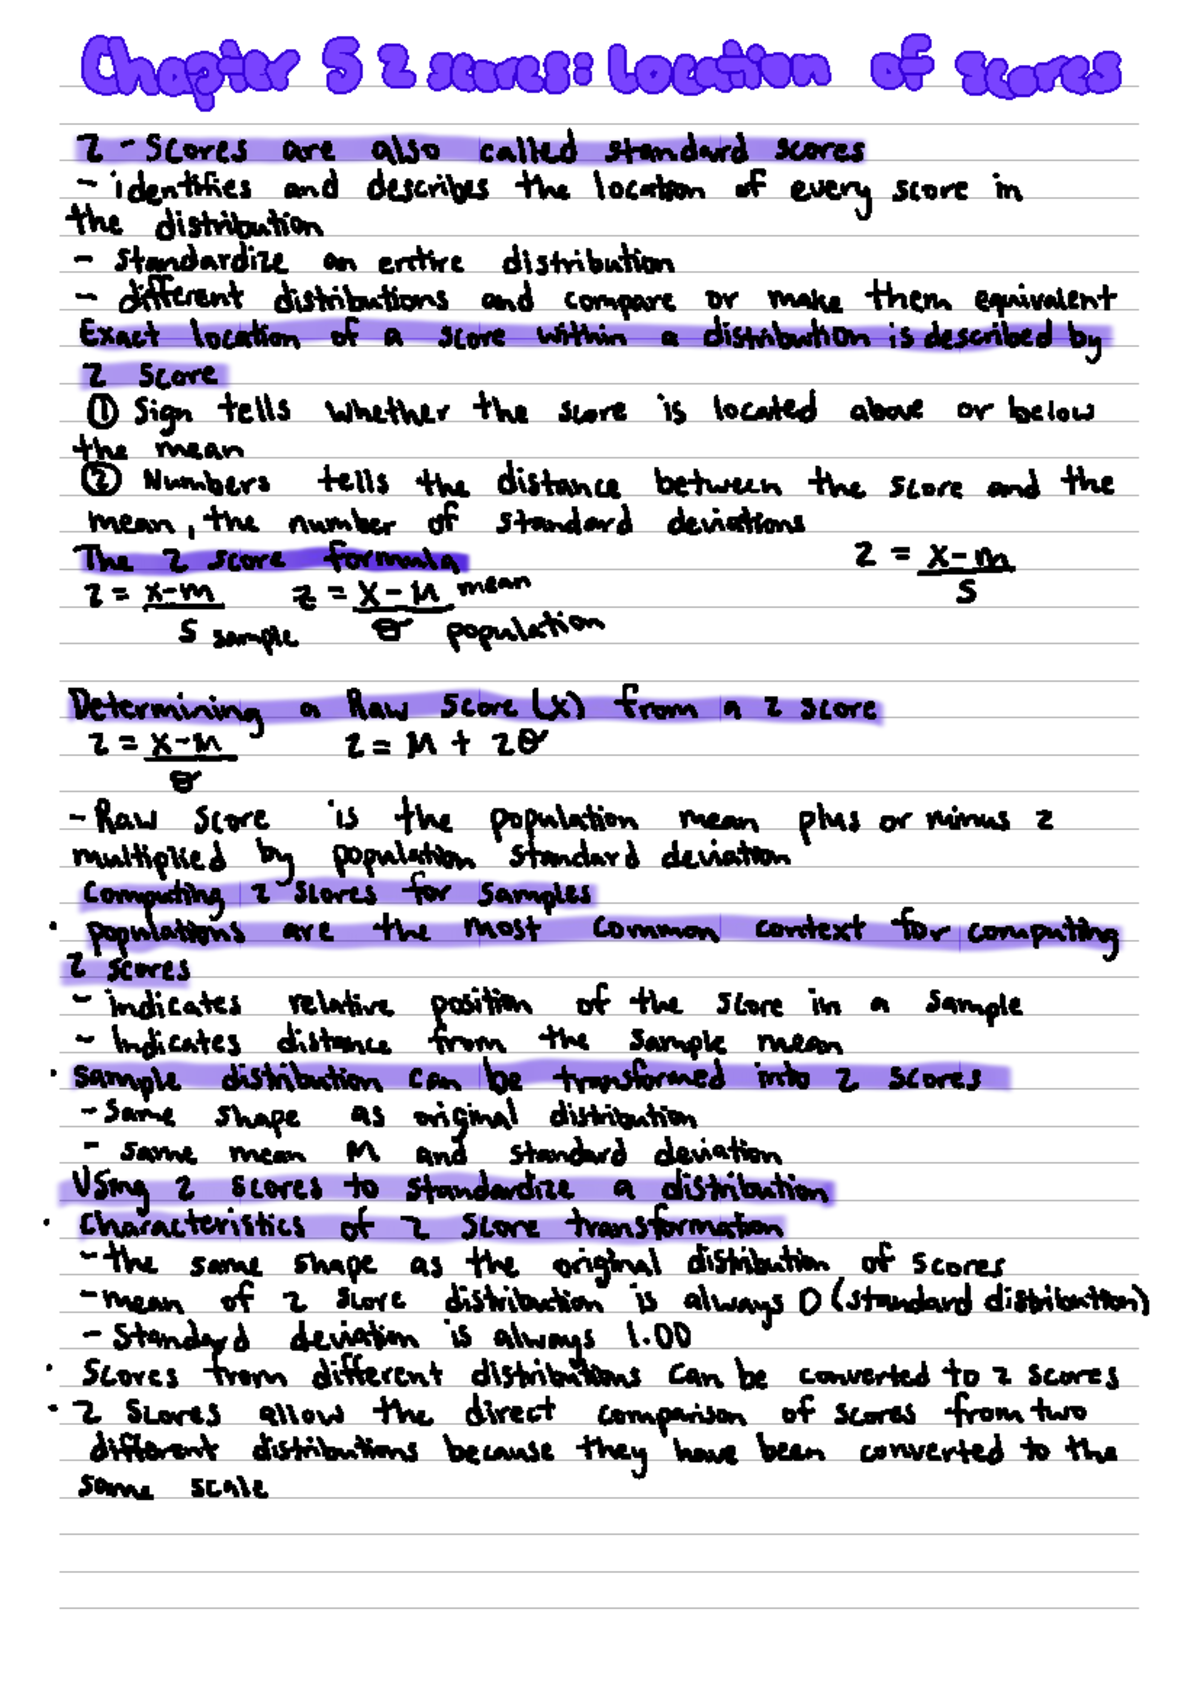 Chapter 5 z scores: Location of scores
Z - Scores are also called standard scores
- identifies and describes the location of every score in
the distribution
- standardize an entire distribution
- different distributions and compare or make them equivalent
Exact location of a score within a distribution is described by
z score
① Sign tells whether the score is located above or below
the mean
② Numbers tells the distance between the score and the
mean, the number of standard deviations
The z score formula
z = x-m / s sample   z = x-M mean / σ population   z = x-m / s
Determining a Raw Score (x) from a z score
z = x-M / σ   z = M + zσ
- Raw score is the population mean plus or minus z
multiplied by population standard deviation
Computing z scores for samples
· populations are the most common context for computing
z scores
- indicates relative position of the score in a sample
- Indicates distance from the sample mean
· sample distribution can be transformed into z scores
- Same shape as original distribution
- same mean M and standard deviation
Using z scores to standardize a distribution
· Characteristics of z score transformation
- the same shape as the original distribution of scores
- mean of z score distribution is always 0 (standard distribution)
- Standard deviation is always 1.00
· Scores from different distributions can be converted to z scores
· z scores allow the direct comparison of scores from two
different distributions because they have been converted to the
same scale